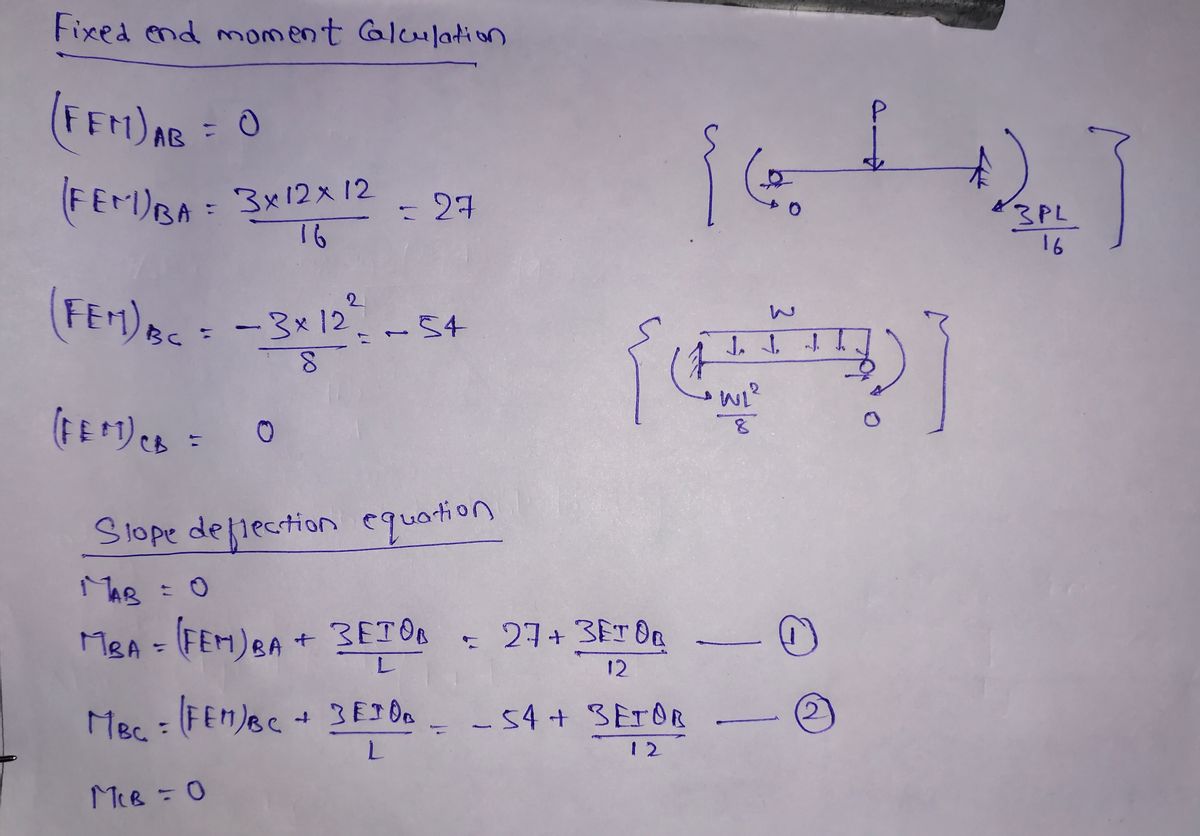 Fixed end moment Calculation
(FEM)AB = 0
P
0
3PL/16
(FEM)BA = 3×12×12/16 = 27
(FEM)BC = -3×12²/8 = -54
W
WL²/8
0
(FEM)CB = 0
Slope deflection equation
MAB = 0
MBA = (FEM)BA + 3EIθB/L = 27 + 3EIθB/12 — ①
MBC = (FEM)BC + 3EIθB/L = -54 + 3EIθB/12 — ②
MCB = 0